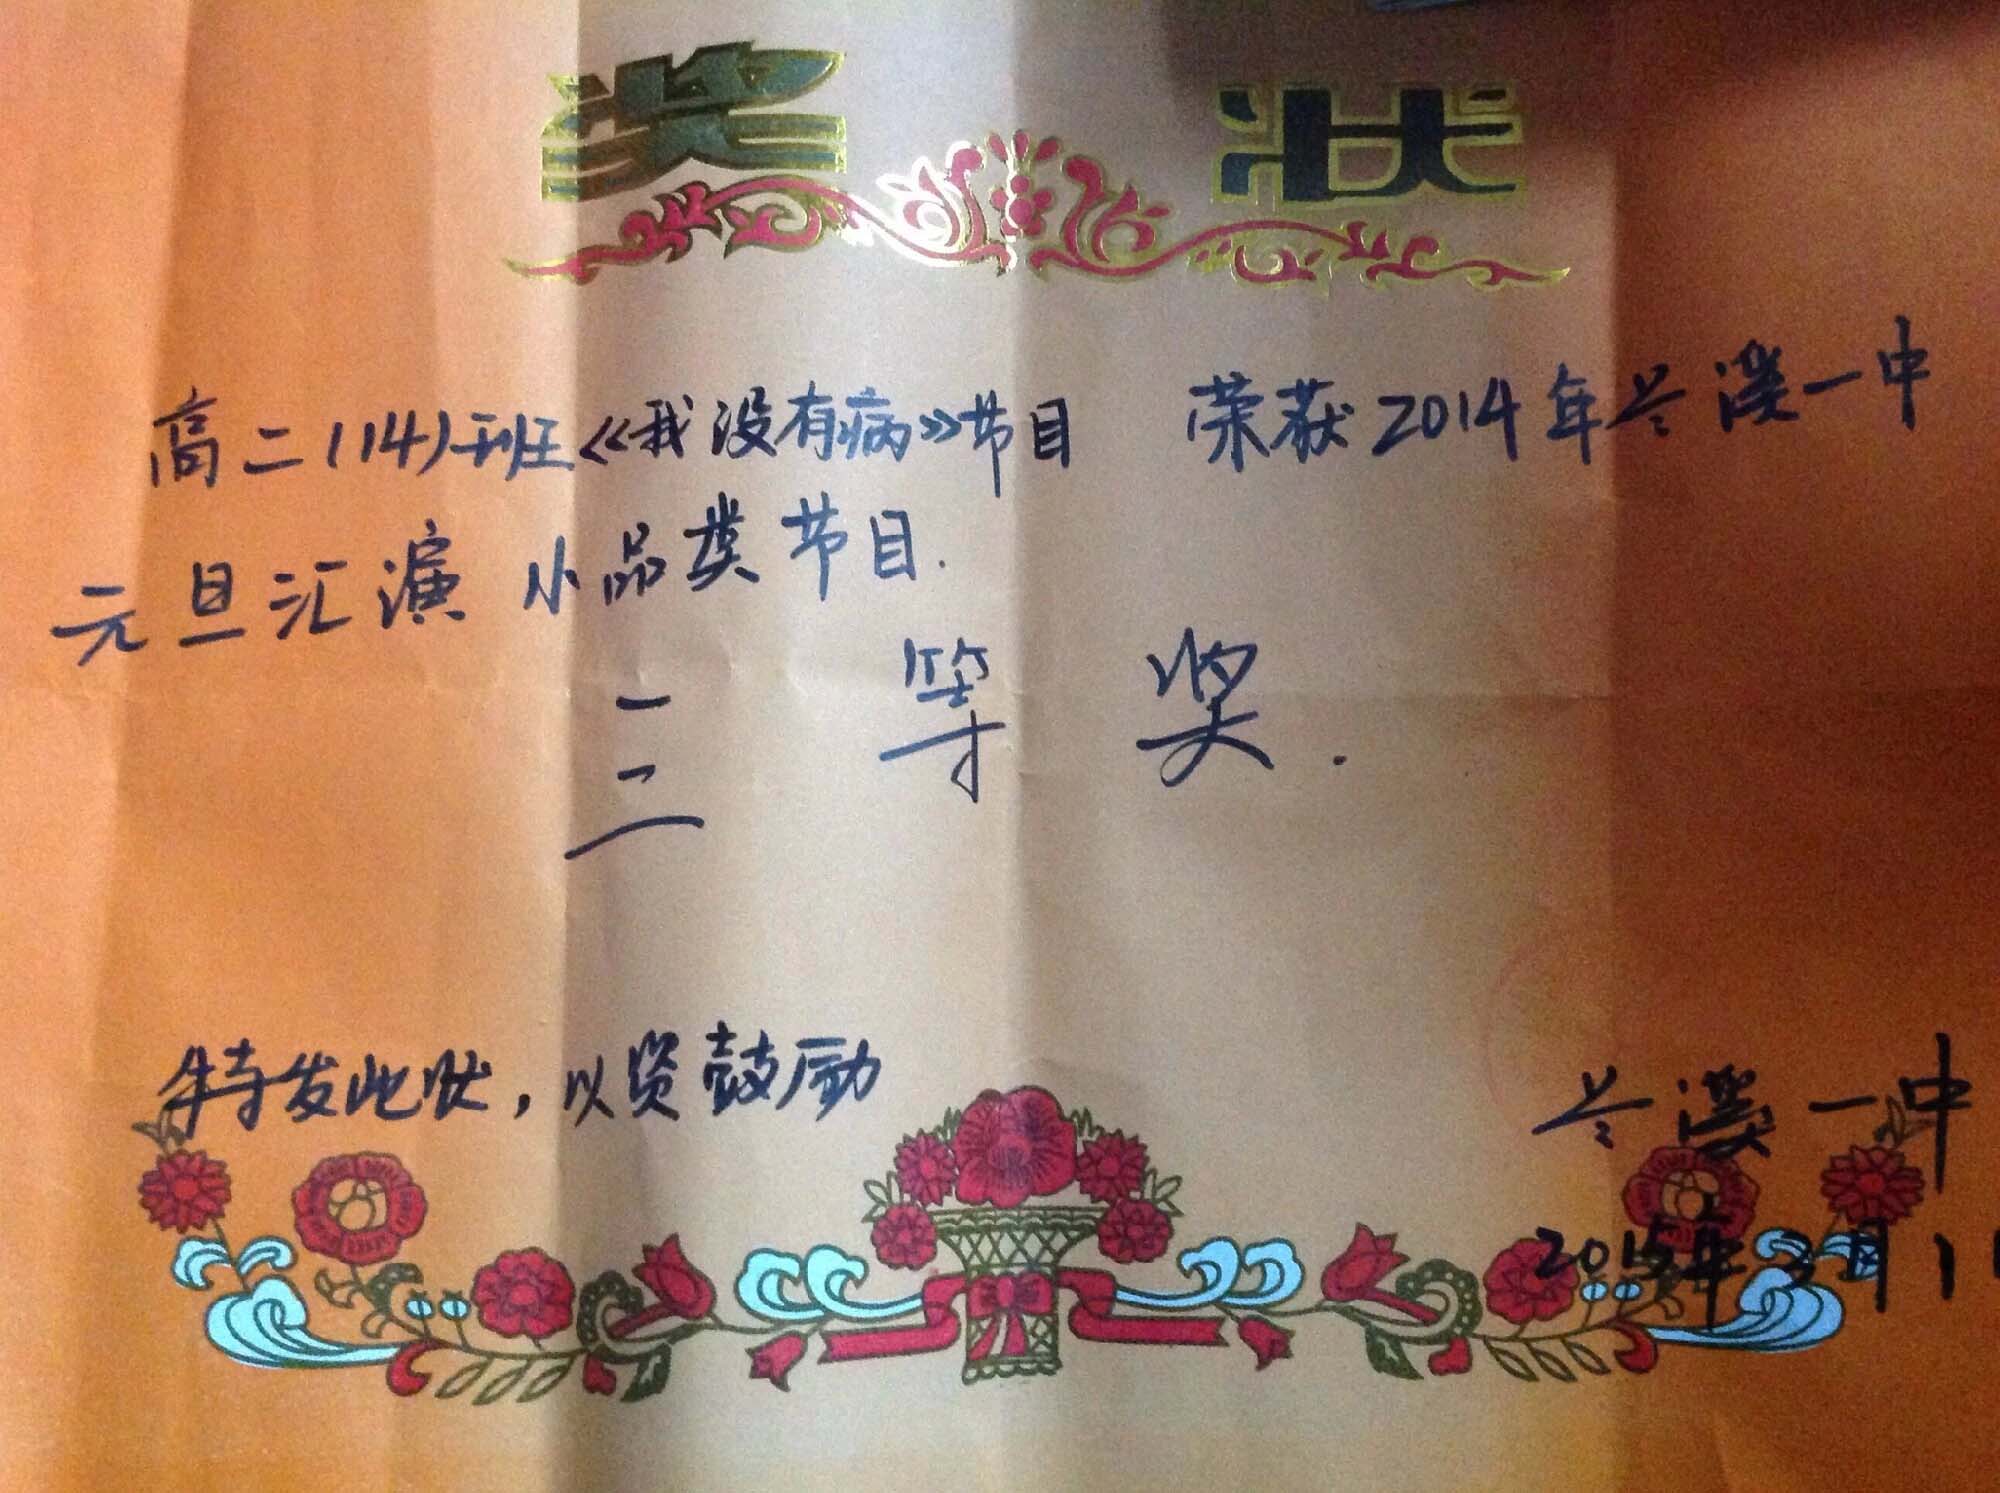 奖状
高二(14)班《我没有病》节目 荣获2014年兰溪一中
元旦汇演小品类节目.
三等奖.
特发此状,以资鼓励
兰溪一中
2015年 月1